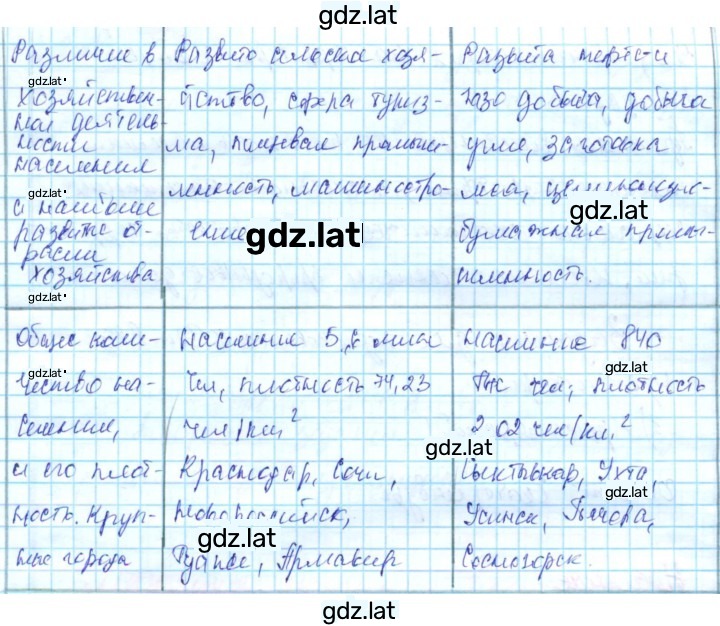 gdz.lat
Различие в
хозяйствен-
ной деятель-
ности
населения
и наиболее
развитые от-
расли
хозяйства
Развито сельское хозя-
йство, сфера туриз-
ма, пищевая промыш-
ленность, машиностро-
ение
Развита нефте- и
газо добыча, добыча
угля, заготовка
леса, целлюлозно-
бумажная промы-
шленность.
Общее коли-
чество на-
селения,
и его плот-
ность. Круп-
ные города
население 5,6 млн
чел, плотность 74,23
чел/км²
Краснодар, Сочи,
Новороссийск,
Туапсе, Армавир
население 840
тыс чел; плотность
2 02 чел/км²
Сыктывкар, Ухта,
Усинск, Печора,
Сосногорск.
gdz.lat
gdz.lat
gdz.lat
gdz.lat
gdz.lat
gdz.lat
gdz.lat
gdz.lat
gdz.lat
gdz.lat
gdz.lat